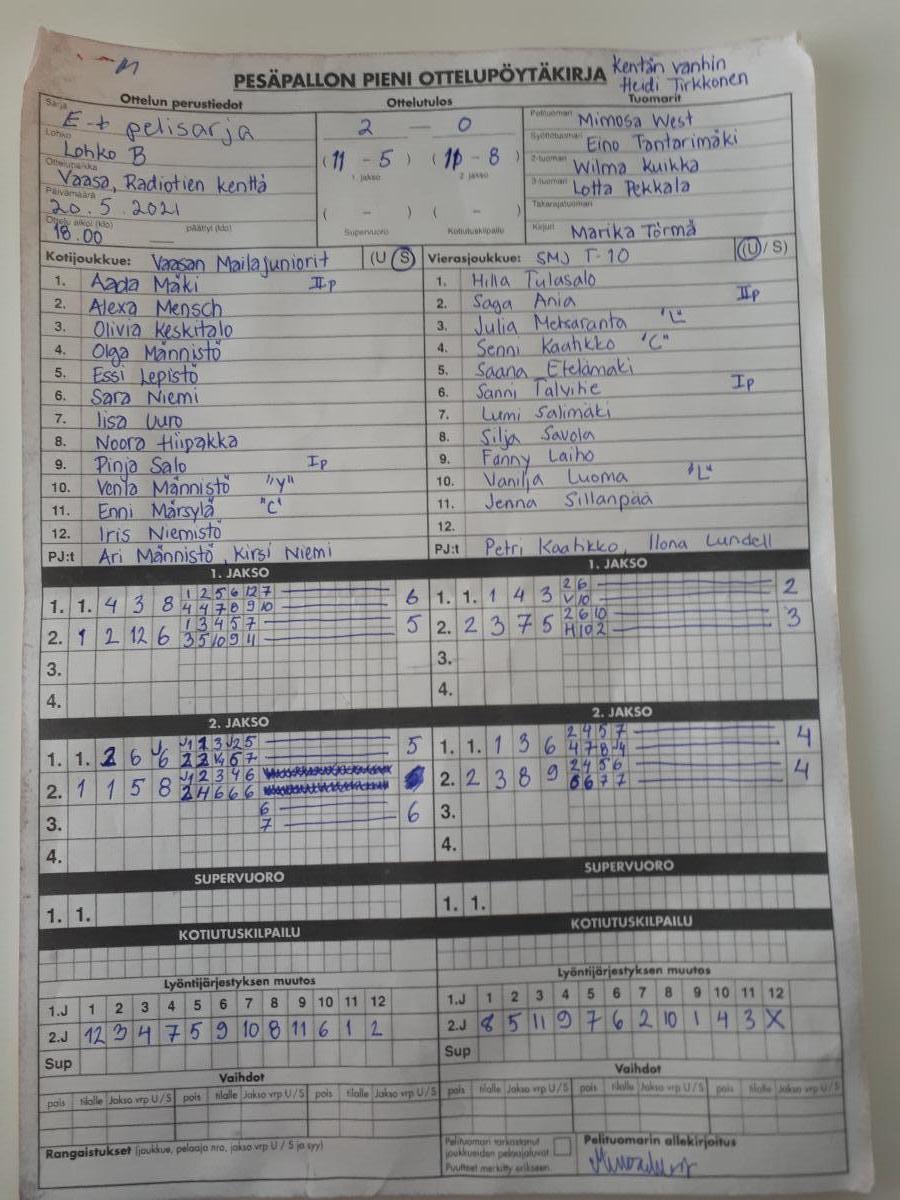 PESÄPALLON PIENI OTTELUPÖYTÄKIRJA
Kentän vanhin
Heidi Tirkkonen
Ottelun perustiedot
Ottelutulos
Tuomarit
Sarja
E-t pelisarja
Lohko
Lohko B
Ottelupaikka
Vaasa, Radiotien kenttä
Päivämäärä
20.5.2021
Ottelu alkoi (klo)
18.00
päättyi (klo)
2 — 0
(11 - 5) (11 - 8)
1. jakso 2. jakso
( - ) ( - )
Supervuoro Kotiutuskilpailu
Pelituomari Mimosa West
Syöttötuomari Eino Tantarimäki
2-tuomari Wilma Kuikka
3-tuomari Lotta Pekkala
Takarajatuomari
Kirjuri Marika Törmä
Kotijoukkue: Vaasan Mailajuniorit (U / S)
1. Aada Mäki IIp
2. Alexa Mensch
3. Olivia Keskitalo
4. Olga Männistö
5. Essi Lepistö
6. Sara Niemi
7. Iisa Uuro
8. Noora Hiipakka
9. Pinja Salo Ip
10. Venla Männistö "Y"
11. Enni Märsylä "C"
12. Iris Niemistö
PJ:t Ari Männistö, Kirsi Niemi
Vierasjoukkue: SMJ T-10 (U / S)
1. Hilla Tulasalo
2. Saga Ania IIp
3. Julia Metsäranta "L"
4. Senni Kaahkko "C"
5. Saana Etelämäki
6. Sanni Talvitie Ip
7. Lumi Salimäki
8. Silja Savola
9. Fanny Laiho
10. Vanilja Luoma "L"
11. Jenna Sillanpää
12.
PJ:t Petri Kaahkko, Ilona Lundell
1. JAKSO
1. 1. 4 3 8 1 2 5 6 12 7 6
4 4 7 8 9 10
2. 1 2 12 6 1 3 4 5 7 5
3 5 10 9 11
3.
4.
1. JAKSO
1. 1. 1 4 3 2 6 2
V 10
2. 2 3 7 5 2 6 10 3
H 10 2
3.
4.
2. JAKSO
1. 1. 2 6 5
2. 1 1 5 8
3. 6 6
7
4.
2. JAKSO
1. 1. 1 3 6 2 4 5 7 4
2. 2 3 8 9 2 4 5 6 4
6 6 7 7
3.
4.
SUPERVUORO
1. 1.
SUPERVUORO
1. 1.
KOTIUTUSKILPAILU
KOTIUTUSKILPAILU
Lyöntijärjestyksen muutos
1.J 1 2 3 4 5 6 7 8 9 10 11 12
2.J 12 3 4 7 5 9 10 8 11 6 1 2
Sup
Lyöntijärjestyksen muutos
1.J 1 2 3 4 5 6 7 8 9 10 11 12
2.J 8 5 11 9 7 6 2 10 1 4 3 X
Sup
Vaihdot
pois tilalle Jakso vrp U / S pois tilalle Jakso vrp U / S pois tilalle Jakso vrp U / S
Vaihdot
pois tilalle Jakso vrp U / S pois tilalle Jakso vrp U / S pois tilalle Jakso vrp U / S
Rangaistukset (joukkue, pelaaja nro, jakso vrp U / S ja syy)
Pelituomari tarkastanut
joukkueiden pelaajaluvat
Puutteet merkitty erikseen.
Pelituomarin allekirjoitus